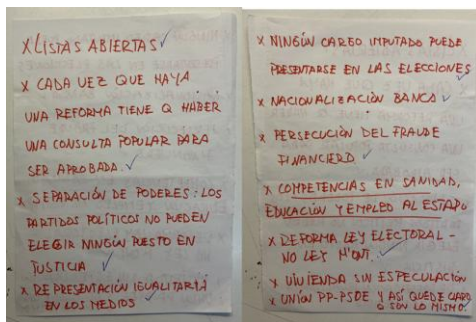 X LISTAS ABIERTAS
X CADA VEZ QUE HAYA
UNA REFORMA TIENE Q HABER
UNA CONSULTA POPULAR PARA
SER APROBADA.
X SEPARACIÓN DE PODERES: LOS
PARTIDOS POLÍTICOS NO PUEDEN
ELEGIR NINGÚN PUESTO EN
JUSTICIA
X REPRESENTACIÓN IGUALITARIA
EN LOS MEDIOS
X NINGÚN CARGO IMPUTADO PUEDE
PRESENTARSE EN LAS ELECCIONES
X NACIONALIZACIÓN BANCA
X PERSECUCIÓN DEL FRAUDE
FINANCIERO
X COMPETENCIAS EN SANIDAD,
EDUCACIÓN Y EMPLEO AL ESTADO
X REFORMA LEY ELECTORAL -
NO LEY H'ONT.
X VIVIENDA SIN ESPECULACIÓN
X UNIÓN PP-PSOE Y ASÍ QUEDE CLARO
Q SON LO MISMO